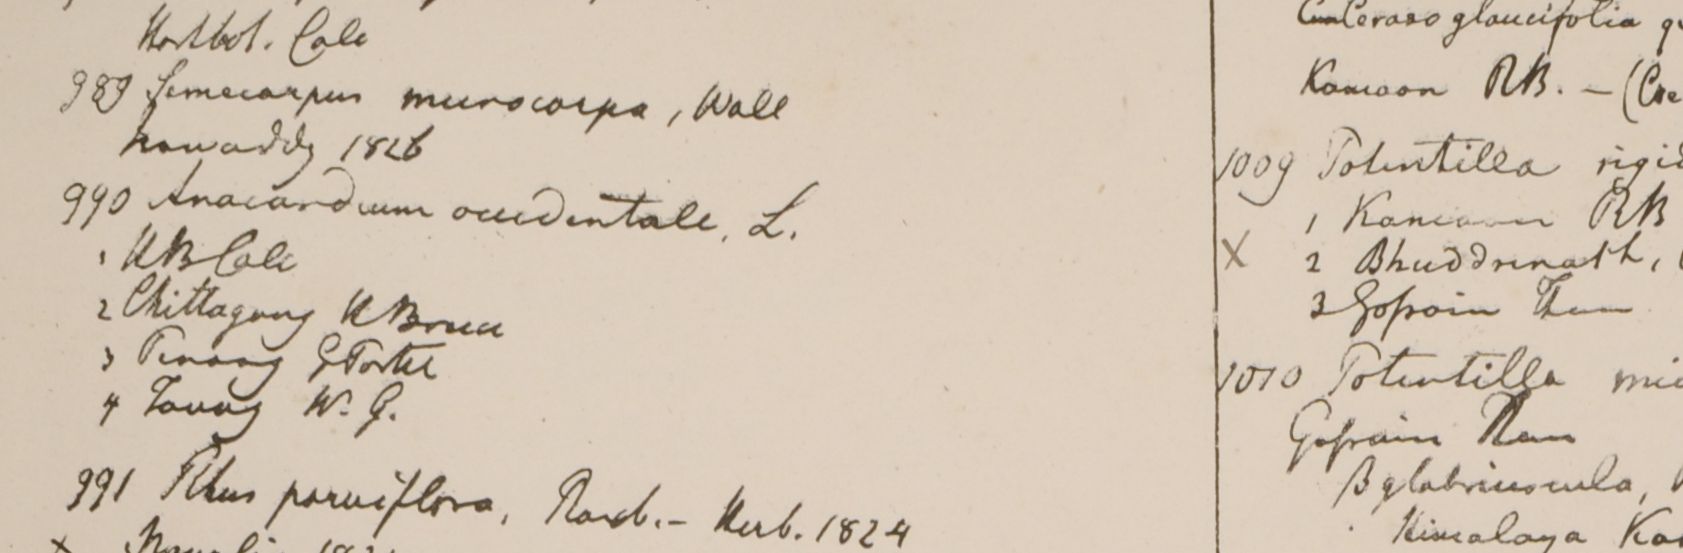 Hortbot. Calc
989 Semecarpus microcarpa, Wall
Irrawaddy 1826
990 Anacardium occidentale, L.
1 HB Calc
2 Chittagong HBruce
3 Penang GPorter
4 Tavoy W. G.
991 Rhus parviflora, Roxb. - Herb. 1824
Ceraso glaucifolia
Kamaon RB. - (
1009 Potentilla
1 Kamaon RB
X 2 Bhuddrinath,
3 Gosain Than
1010 Potentilla
Gosain Than
B glabriuscula,
Himalaya